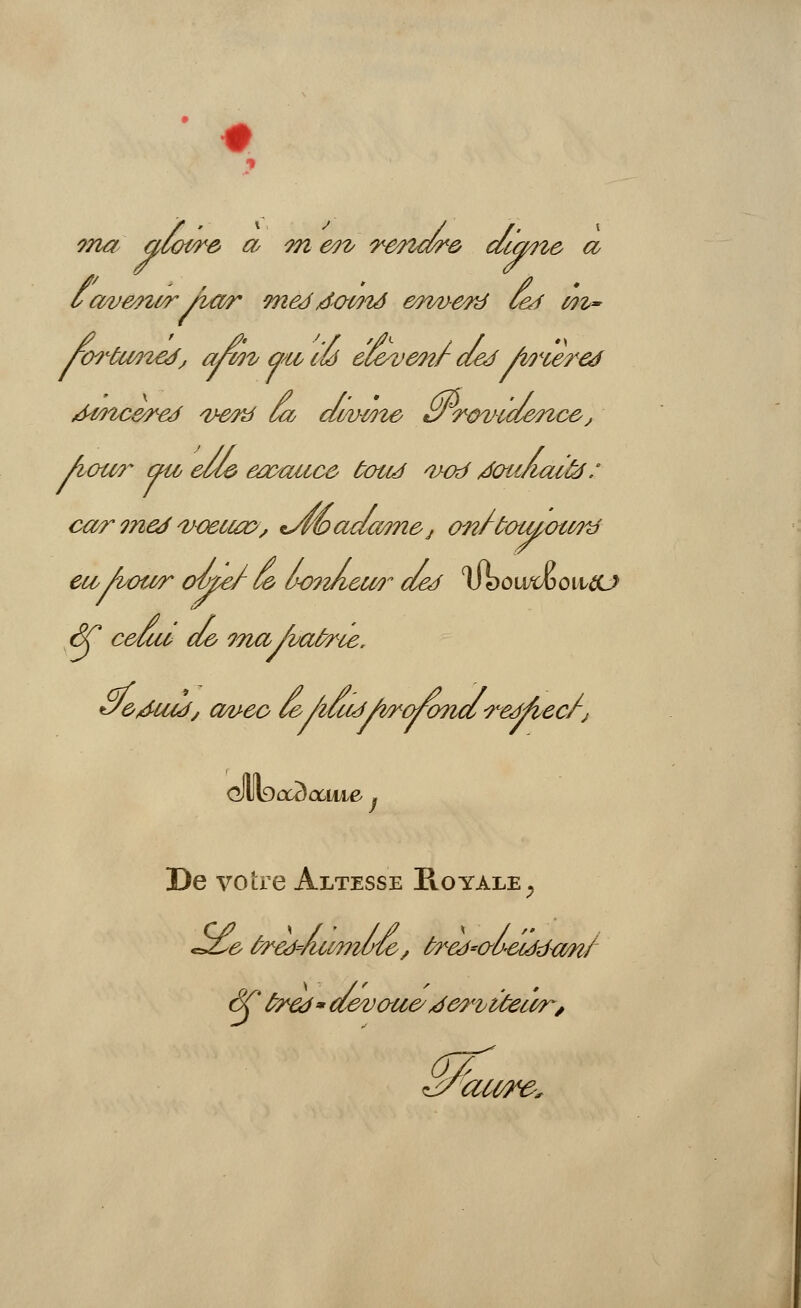 ma gloire à m'en rendre digne à
l'avenir par mes soins envers les in-
fortunés, afin qu'ils élèvent des prières
sincères vers la divine Providence,
pour qu'elle exauce tous vos souhaits :
car mes vœux, Madame, ont toujours
eu pour objet le bonheur des Bourbons
& celui de ma patrie.
Je suis, avec le plus profond respect,
Madame,
De votre ALTESSE ROYALE,
Le très-humble, très-obéissant
& très-dévoué serviteur,
Faure.